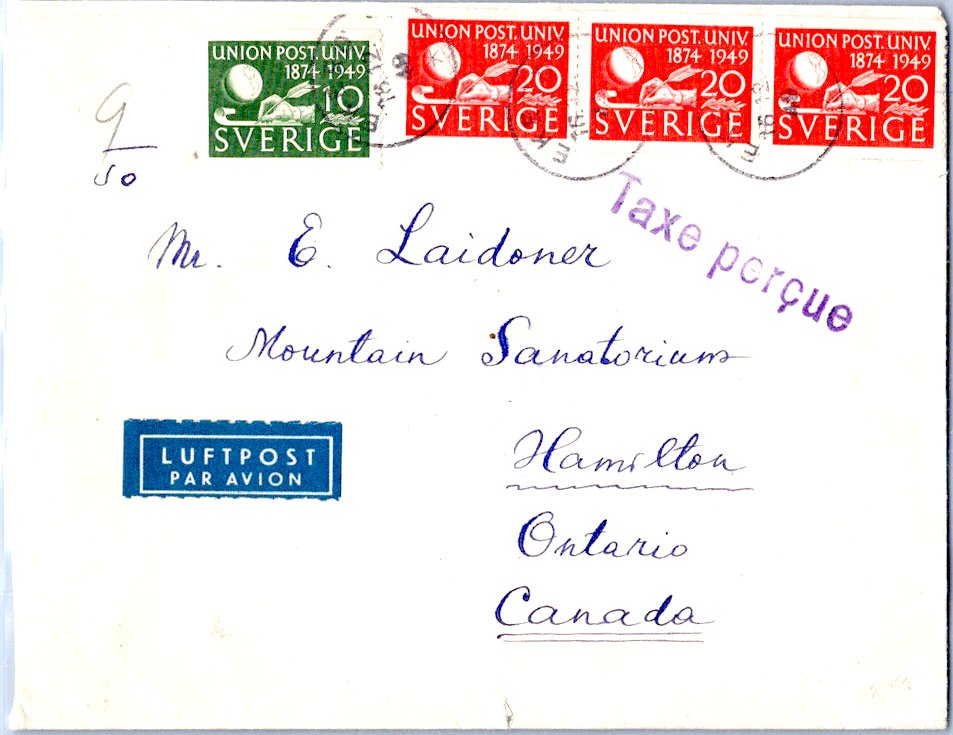 UNION POST. UNIV.
1874 1949
10
SVERIGE
UNION POST. UNIV.
1874 1949
20
SVERIGE
UNION POST. UNIV.
1874 1949
20
SVERIGE
UNION POST. UNIV.
1874 1949
20
SVERIGE
9
50
Taxe perçue
Mr. E. Laidoner
Mountain Sanatorium
LUFTPOST
PAR AVION
Hamilton
Ontario
Canada